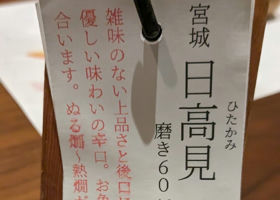 宮城
日高見
ひたかみ
磨き60
雑味のない上品さと後口に
優しい味わいの辛口。お魚
合います。ぬる燗~熱燗が